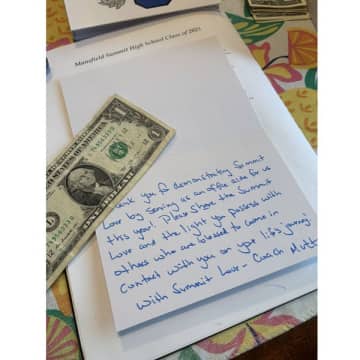 Mansfield Summit High School Class of 2021
ank you for demonstrating Summit
Love by serving as an office aide for us
this year! Please share the Summit
Love and the light you possess with
others who are blessed to come in
contact with you on your life's journey!
With Summit Love - Coach Mutt
ONE DOLLAR